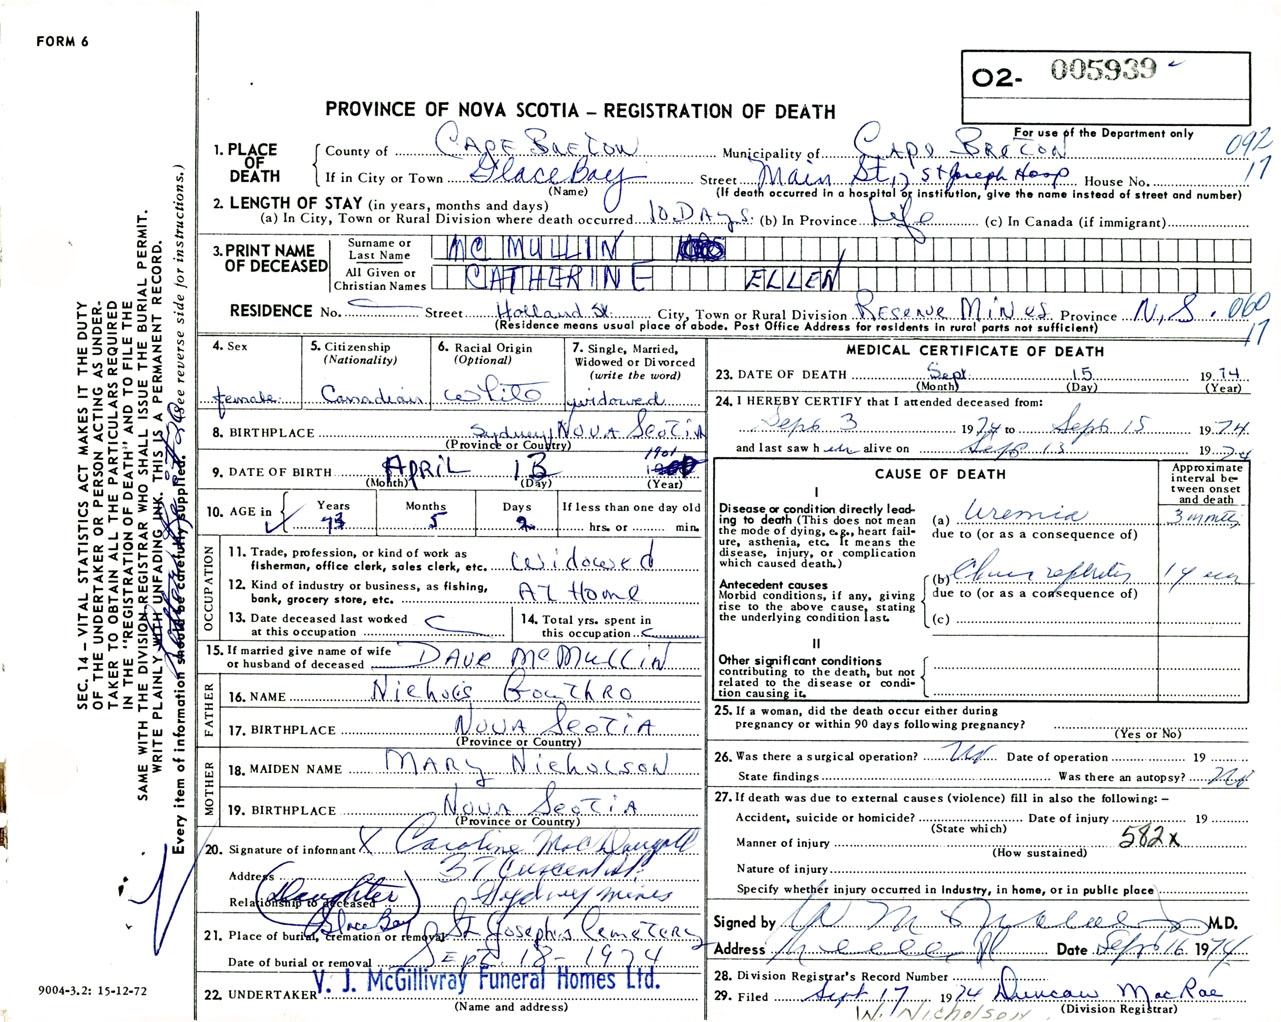 FORM 6
O2- 005939
PROVINCE OF NOVA SCOTIA – REGISTRATION OF DEATH
For use of the Department only
092
17
1. PLACE OF DEATH
County of CAPE BRETON Municipality of CAPE BRETON
If in City or Town Glace Bay Street Main St, St Joseph Hosp House No.
(Name) (If death occurred in a hospital or institution, give the name instead of street and number)
2. LENGTH OF STAY (in years, months and days)
(a) In City, Town or Rural Division where death occurred 10 DAYS (b) In Province Life (c) In Canada (if immigrant)
3. PRINT NAME OF DECEASED
Surname or Last Name MC MULLIN
All Given or Christian Names CATHERINE ELLEN
RESIDENCE No. Street Holland St. City, Town or Rural Division RESERVE MINES Province N.S. 060
17
(Residence means usual place of abode. Post Office Address for residents in rural parts not sufficient)
4. Sex
female
5. Citizenship (Nationality)
Canadian
6. Racial Origin (Optional)
White
7. Single, Married, Widowed or Divorced (write the word)
widowed
8. BIRTHPLACE Sydney, NOVA SCOTIA
(Province or Country)
9. DATE OF BIRTH APRIL 13 1901
(Month) (Day) (Year)
10. AGE in Years Months Days If less than one day old
73 5 2 hrs. or min.
OCCUPATION
11. Trade, profession, or kind of work as fisherman, office clerk, sales clerk, etc. Widowed
12. Kind of industry or business, as fishing, bank, grocery store, etc. AT Home
13. Date deceased last worked at this occupation
14. Total yrs. spent in this occupation
15. If married give name of wife or husband of deceased DAVE McMULLIN
FATHER
16. NAME Nicholas Gouthro
17. BIRTHPLACE NOVA SCOTIA
(Province or Country)
MOTHER
18. MAIDEN NAME MARY Nicholson
19. BIRTHPLACE NOVA SCOTIA
(Province or Country)
20. Signature of informant X Caroline MacDougall
Address 37 Crescent St.
Sydney Mines
Relationship to deceased Daughter
Glace Bay
21. Place of burial, cremation or removal St. Joseph's Cemetery
Date of burial or removal SEPT. 18 - 1974
22. UNDERTAKER V. J. McGillivray Funeral Homes Ltd.
(Name and address)
MEDICAL CERTIFICATE OF DEATH
23. DATE OF DEATH Sept 15 1974
(Month) (Day) (Year)
24. I HEREBY CERTIFY that I attended deceased from:
Sept 3 1974 to Sept 15 1974
and last saw her alive on Sept 15 1974
CAUSE OF DEATH
Approximate interval between onset and death
I
Disease or condition directly leading to death (This does not mean the mode of dying, e.g., heart failure, asthenia, etc. It means the disease, injury, or complication which caused death.)
(a) Uremia 3 months
due to (or as a consequence of)
Antecedent causes
Morbid conditions, if any, giving rise to the above cause, stating the underlying condition last.
(b) nephritis 1 year
due to (or as a consequence of)
(c)
II
Other significant conditions contributing to the death, but not related to the disease or condition causing it.
25. If a woman, did the death occur either during pregnancy or within 90 days following pregnancy?
(Yes or No)
26. Was there a surgical operation? No Date of operation 19
State findings Was there an autopsy? No
27. If death was due to external causes (violence) fill in also the following: –
Accident, suicide or homicide? Date of injury 19
(State which)
Manner of injury 582x
(How sustained)
Nature of injury
Specify whether injury occurred in Industry, in home, or in public place
Signed by M.D.
Address Date Sept 16 1974
28. Division Registrar's Record Number
29. Filed Sept 17 1974 Duncan MacRae
W. Nicholson
(Division Registrar)
SEC. 14 – VITAL STATISTICS ACT MAKES IT THE DUTY
OF THE UNDERTAKER OR PERSON ACTING AS UNDER-
TAKER TO OBTAIN ALL THE PARTICULARS REQUIRED
IN THE "REGISTRATION OF DEATH" AND TO FILE THE
SAME WITH THE DIVISION REGISTRAR WHO SHALL ISSUE THE BURIAL PERMIT.
WRITE PLAINLY WITH UNFADING INK. THIS IS A PERMANENT RECORD.
Every item of information should be carefully supplied. (See reverse side for instructions.)
9004-3.2: 15-12-72